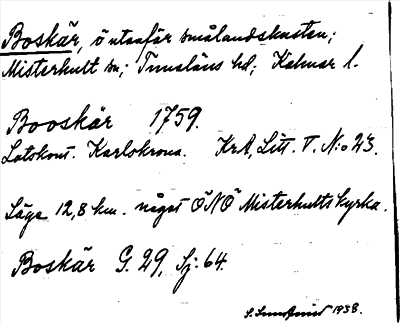 Boskär, ö utanför smålandskusten;
Misterhult sn; Tunaläns hd; Kalmar l.
Booskär 1759.
Lotskont. Karlskrona. KrA, Litt. V. N:o 23.
Läge 12,8 km. något ÖNÖ Misterhults kyrka.
Boskär G. 29, Sj: 64.
1938.